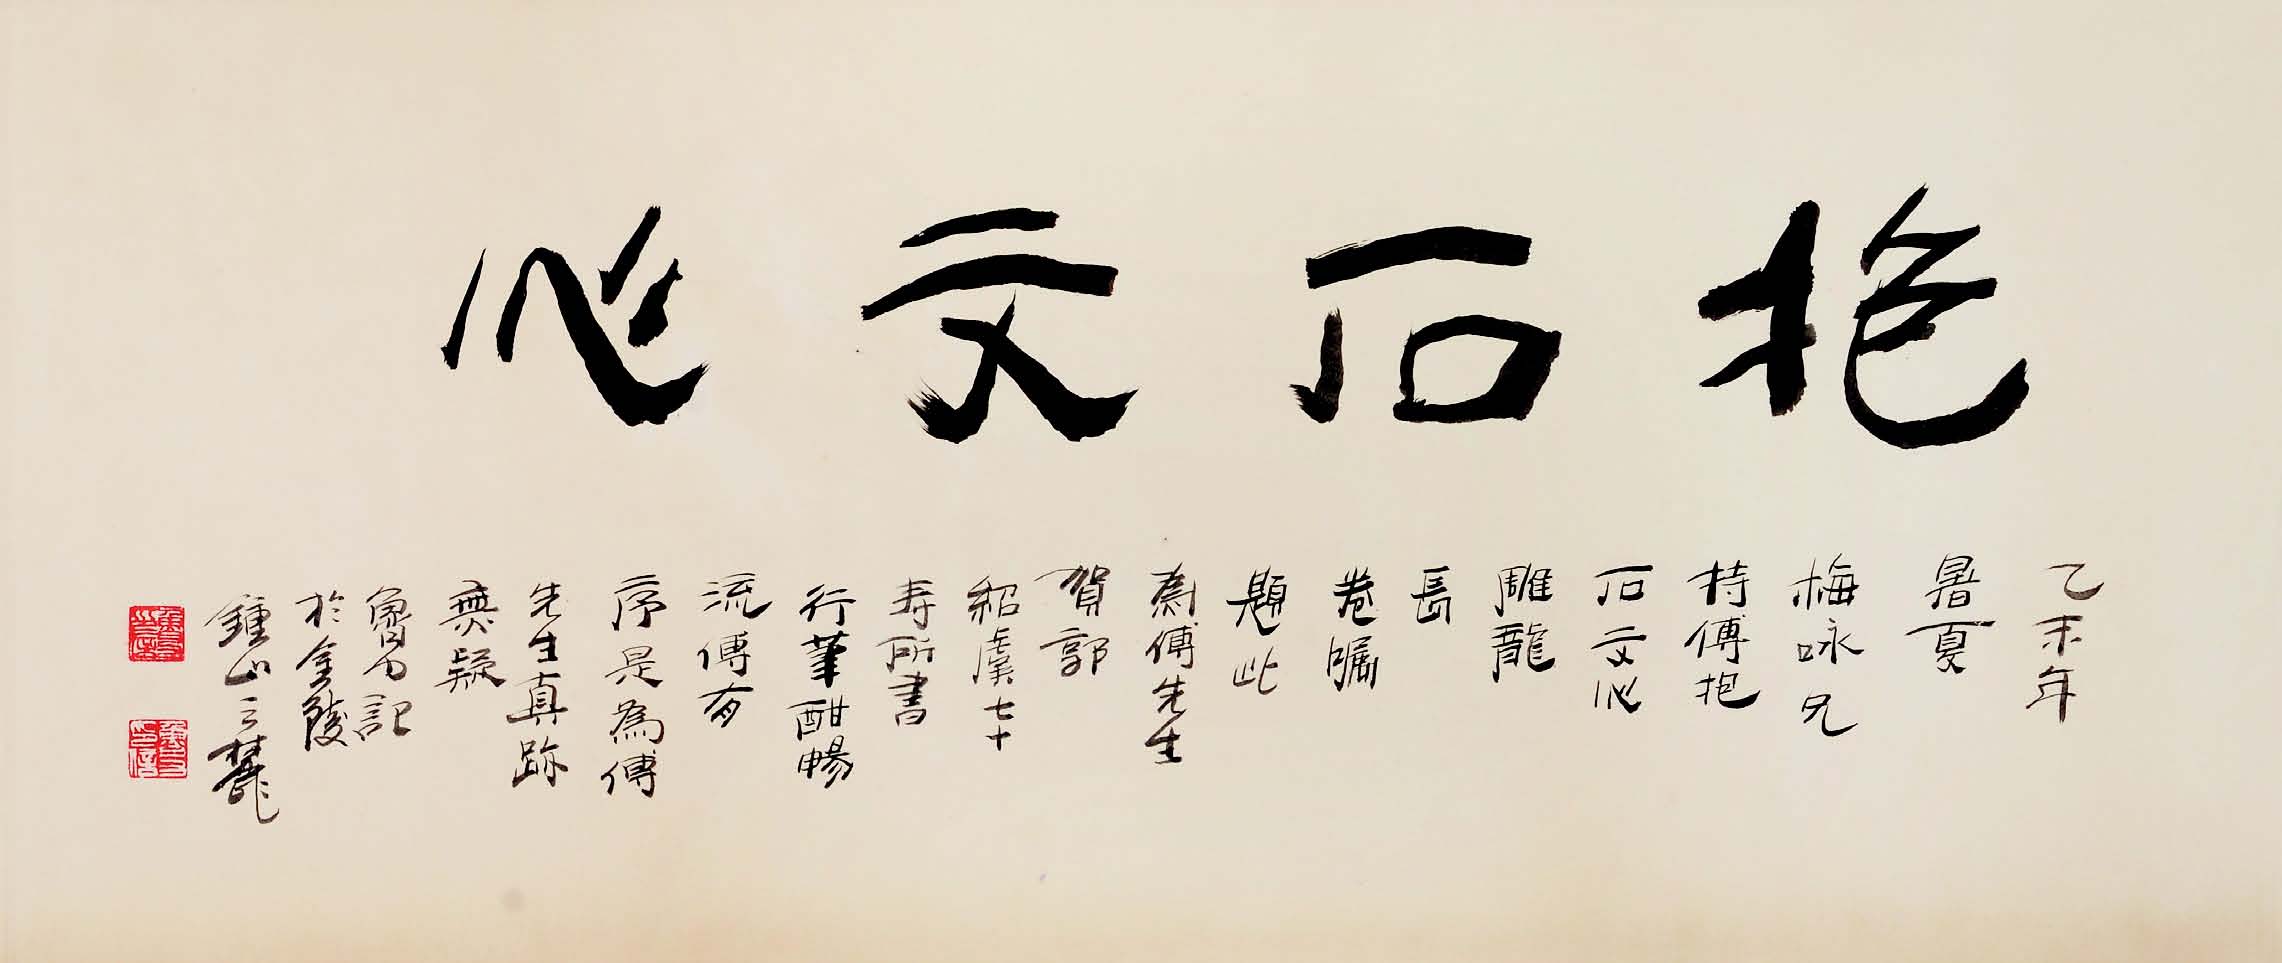 抱石文心
乙未年
暑夏
梅咏兄
持傅抱
石文心
雕龍
長
卷嘱
題此
為傅先生
賀郭
紹虞七十
寿所書
行筆酣暢
流傅有
序是為傅
先生真跡
無疑
魯力記
於金陵
鍾山之麓